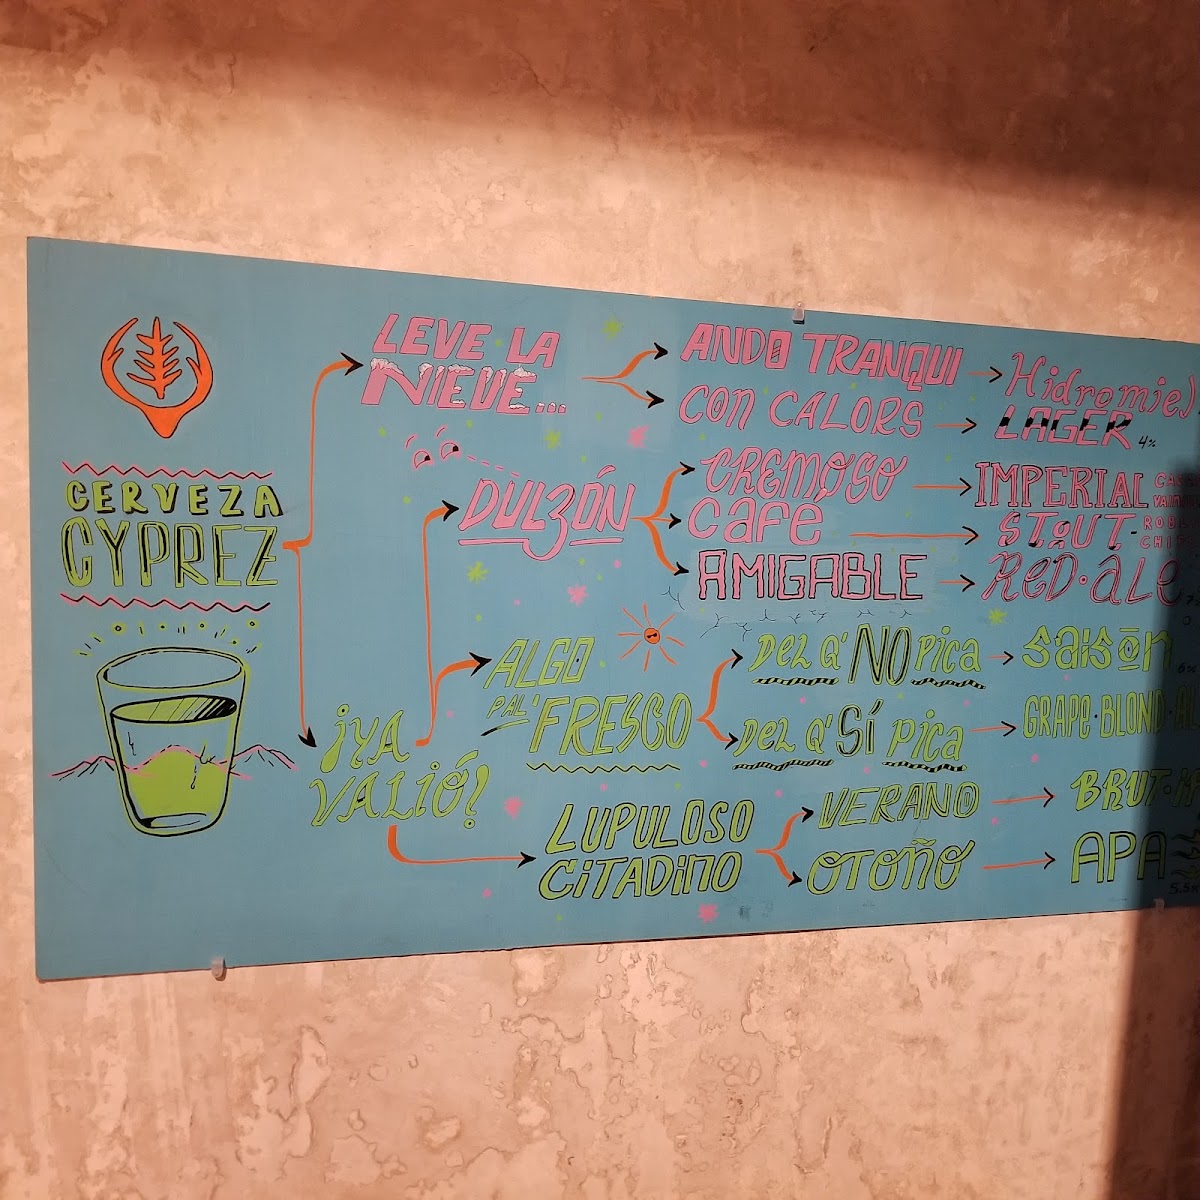 CERVEZA
CYPREZ
LEVE LA
NIEVE...
ANDO TRANQUI
Hidromiel
CON CALORS
LAGER 4%
¡YA
VALIÓ!
DULZÓN
CREMOSO
IMPERIAL
CAFÉ
STOUT
AMIGABLE
RED·ALE
ALGO
PAL' FRESCO
DEL Q' NO PICA
SAISŌN 6%
DEL Q' SÍ PICA
GRAPE·BLOND
LUPULOSO
CITADINO
VERANO
BRUT
OTOÑO
APA